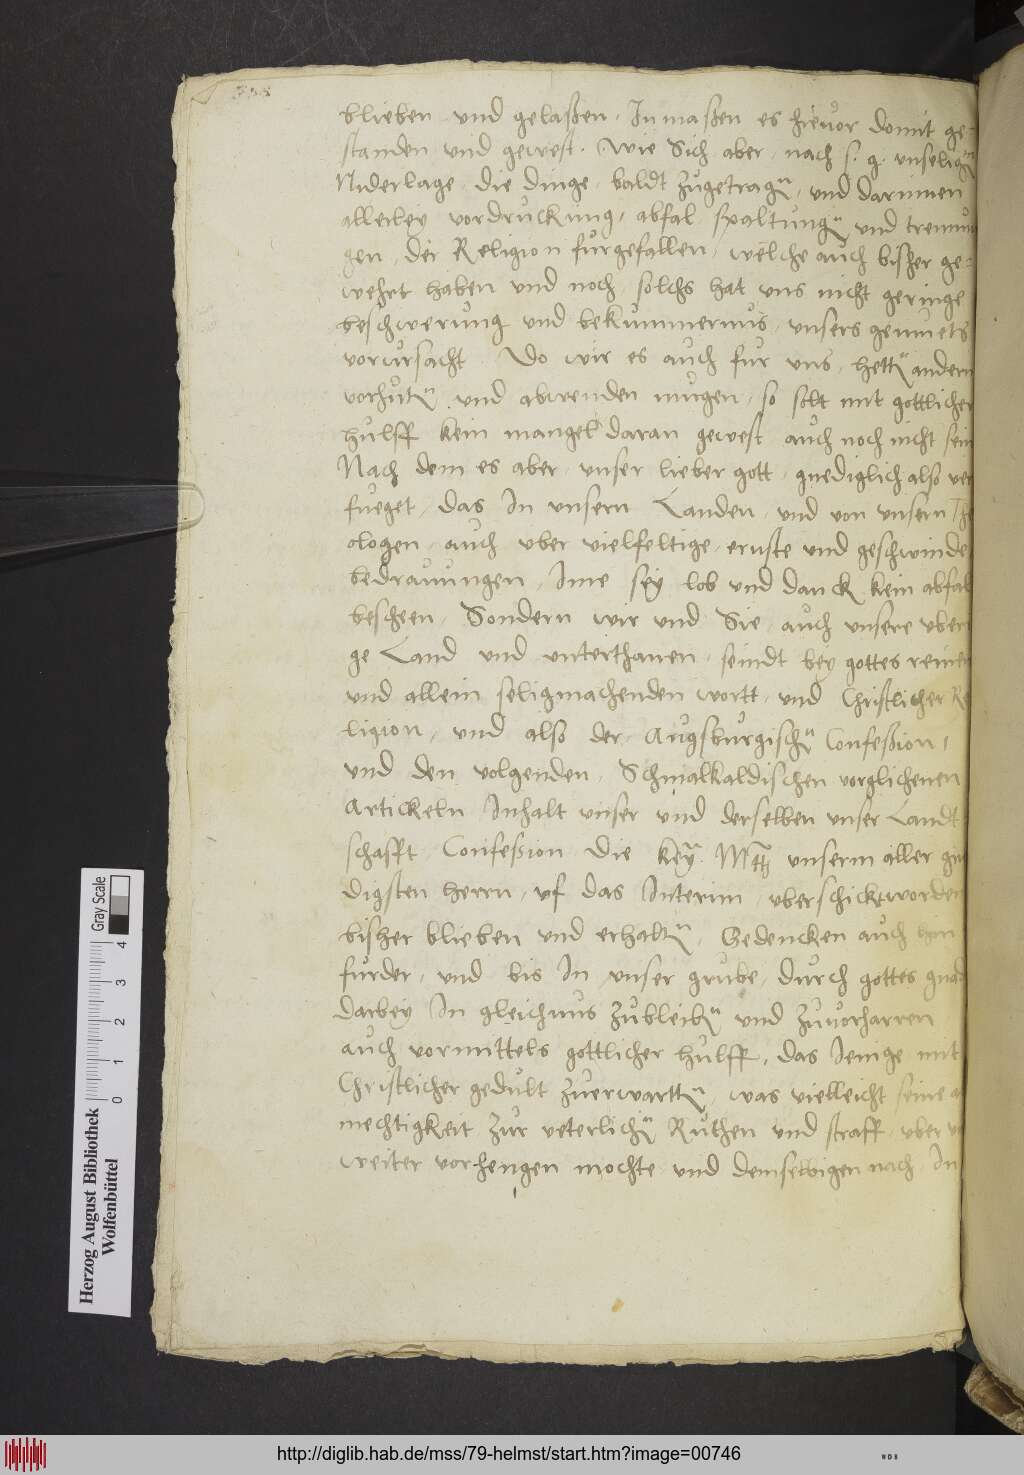 blieben und gelaßen, Inmaßen es hievor domit ge-
standen und gewest. Wie Sich aber nach s. g. unselig
Niderlage, die dinge, baldt zugetrag, und darinnen
allerley vordruckung, abfal, spaltung und trennun
gen, der Religion furgefallen, welche auch bißher ge-
wehrt haben und noch, solchs hat uns nicht geringe
beschwerung und bekummernus, unsers gemuets
vorursacht. Do wir es auch fur uns, hett andern
vorhut, und abwenden mugen, so solt mit gottlicher
hulff kein mangel daran gewest, auch noch nicht sein
Nach dem es aber, unser lieber gott, gnediglich also ver
fueget, das In unsern Landen, und von unsern The
ologen, auch uber vielfeltige, ernste und geschwinde
bedrauungen, Ime sey lob und danck kein abfal
bescheen, Sondern wir und Sie, auch unsere uberi
ge Land und unterthanen, seindt bey gottes reinen
und allein seligmachenden wortt, und Christlicher Re
ligion, und also der Augsburgisch Confession,
und den volgenden, Schmalkaldischen vorglichenen
Artickeln Inhalt unser und derselben unser Landt
schafft Confession die key. Mtt unserm aller gne
digsten herrn, uf das Interim, uberschickt worden
bisher blieben und erhalt, Gedencken auch hin
furder, und bis In unser grube, durch gottes gnad
darbey In gleichnus zubleib und zuvorharren
auch vormittels gottlicher hulff, das Jenige mit
Christlicher gedult zuerwartt, was vielleicht seine al
mechtigkeit zur veterlich Ruthen und straff, uber un
weiter vorhengen mochte und demselbigen nach, In
Herzog August Bibliothek
Wolfenbüttel
0 1 2 3 4
Gray Scale
http://diglib.hab.de/mss/79-helmst/start.htm?image=00746